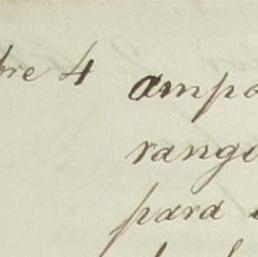 bre 4 ampa
rango
para